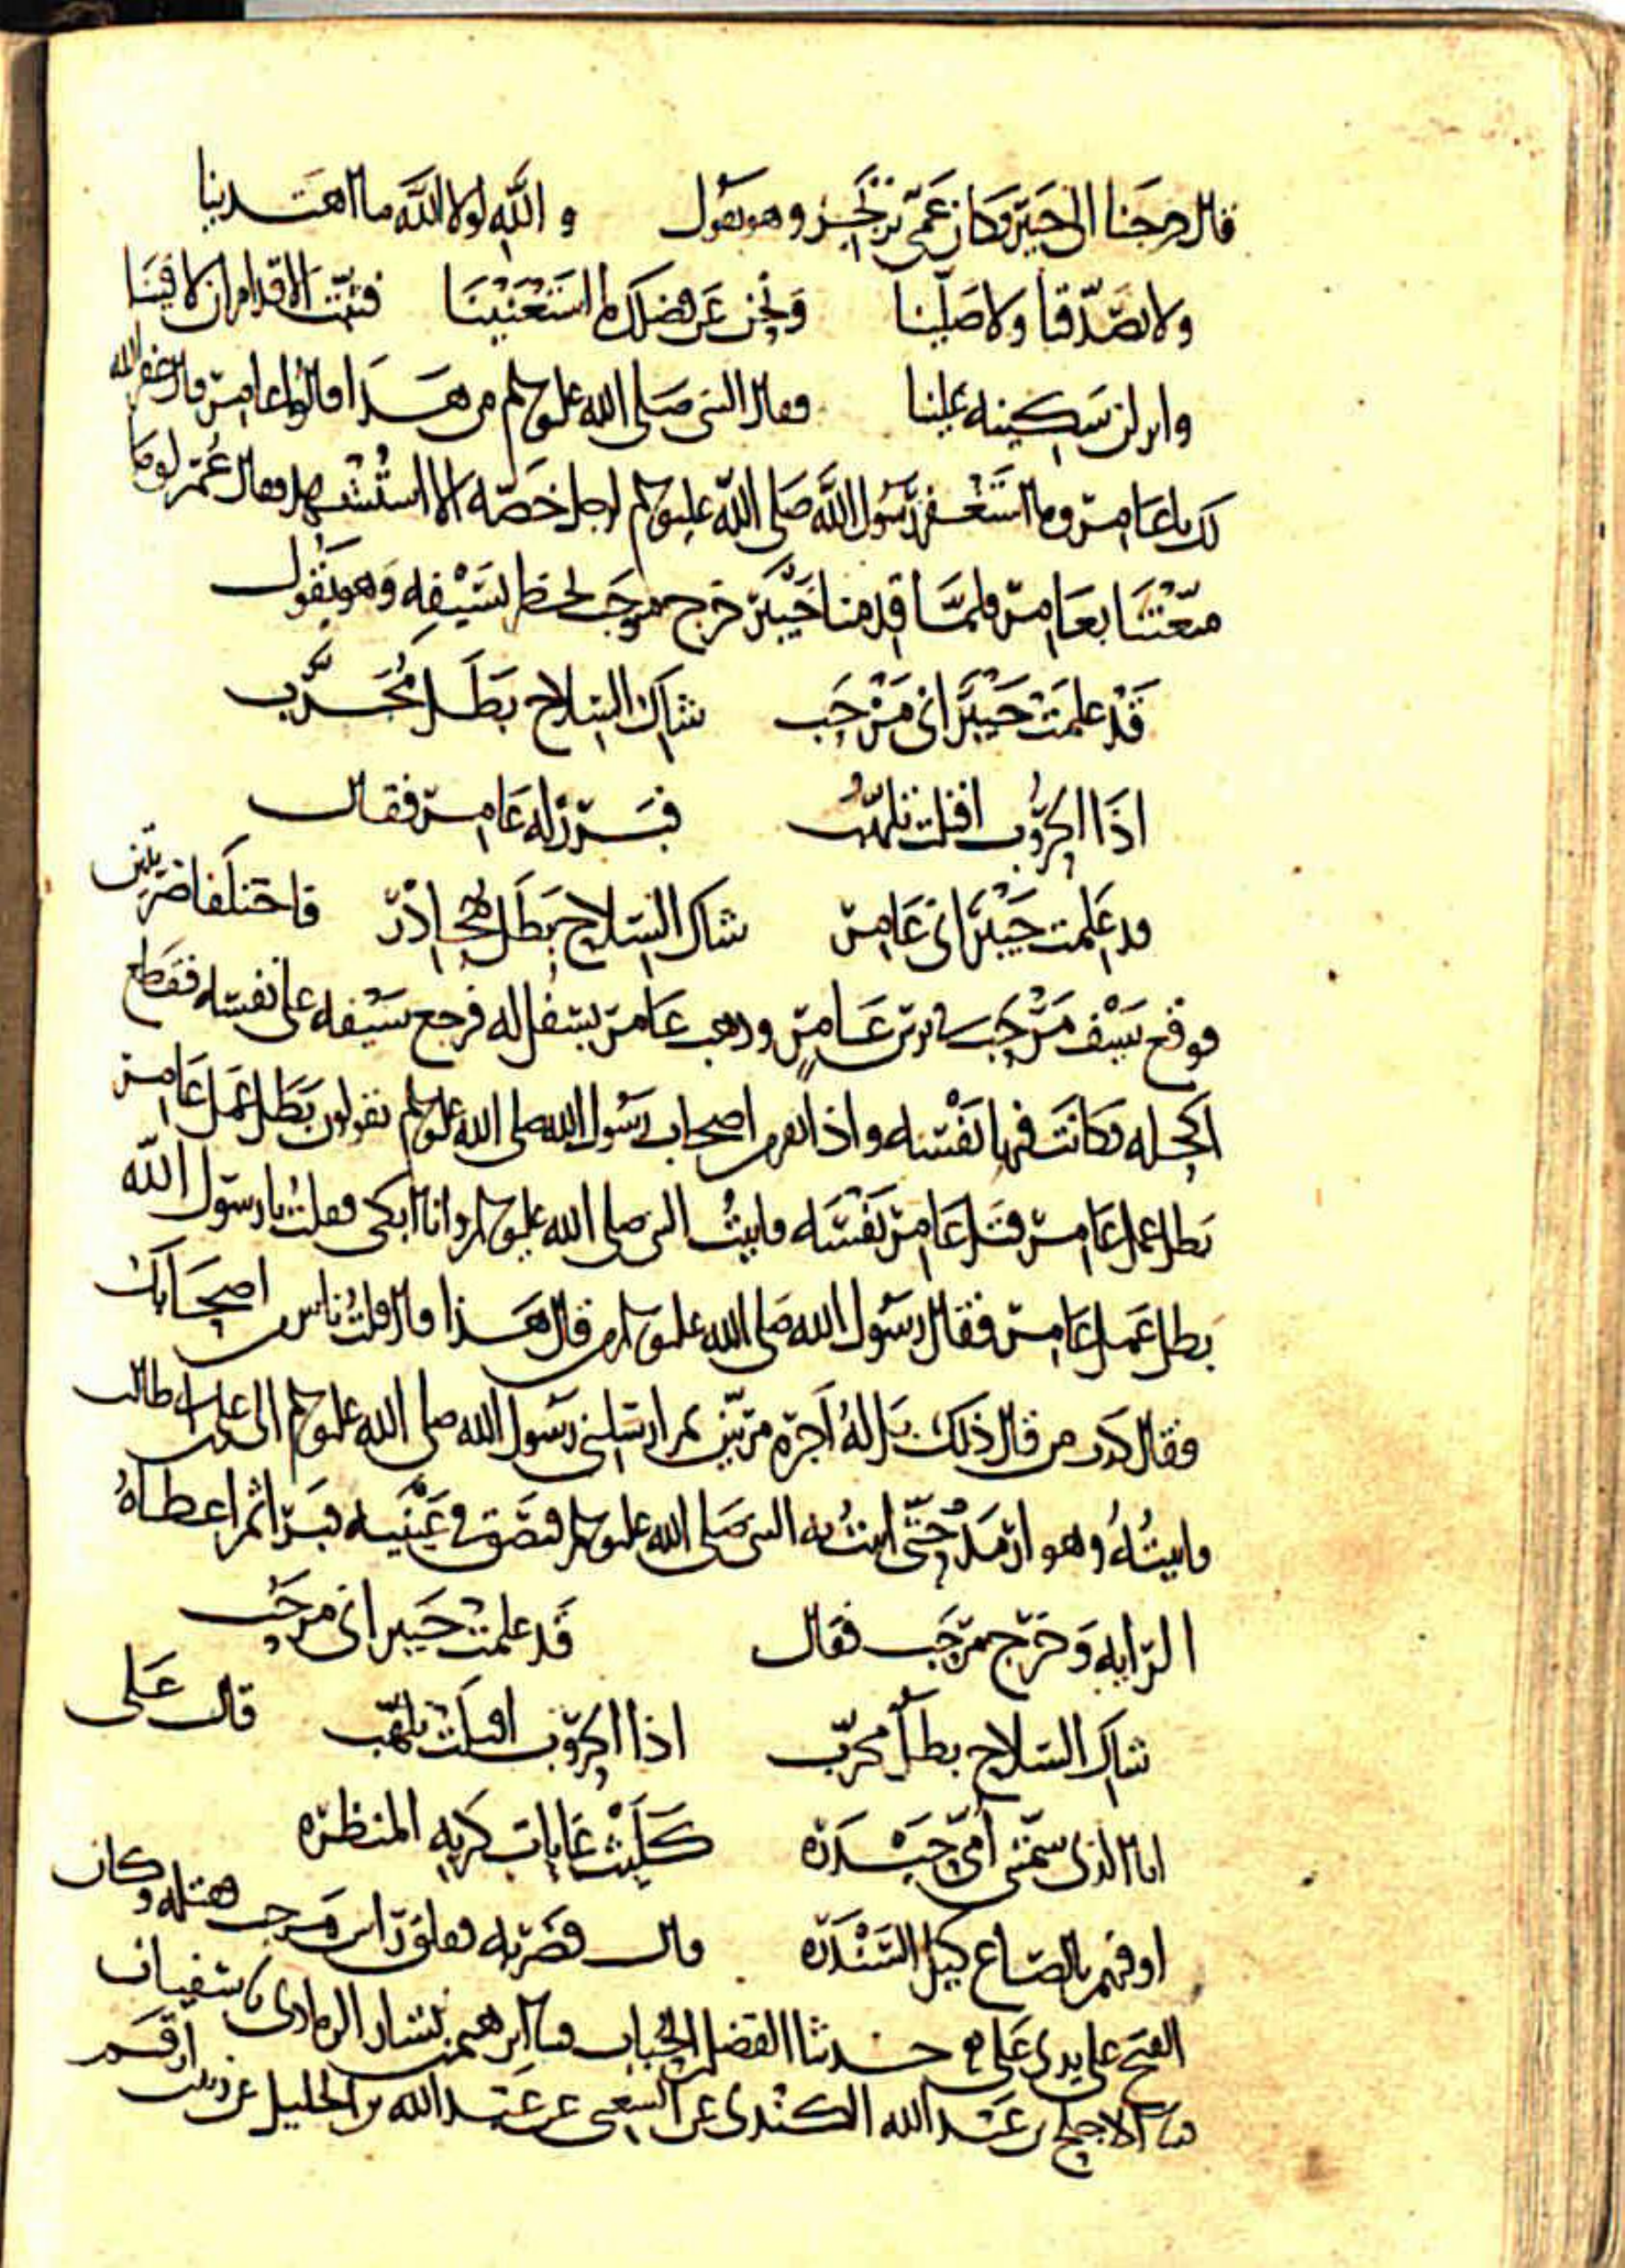 قال خرجنا الى خيبر وكان عمي يرتجز وهو يقول والله لولا الله ما اهتدينا
ولا تصدقنا ولا صلينا ونحن عن فضلك ما استغنينا فثبت الاقدام ان لاقينا
وانزلن سكينة علينا فقال النبي صلى الله عليه وسلم من هذا قالوا عامر قال غفر الله
لك يا عامر وما استغفر رسول الله صلى الله عليه وسلم لرجل خصه الا استشهد فقال عمر لو ما
متعتنا بعامر فلما قدمنا خيبر خرج مرحب يخطر بسيفه وهو يقول
قد علمت خيبر اني مرحب شاك السلاح بطل مجرب
اذا الحروب اقبلت تلهب فبرز له عامر فقال
قد علمت خيبر اني عامر شاك السلاح بطل مغاذر فاختلفا ضربتين
فوقع سيف مرحب في ترس عامر وذهب عامر يسفل له فرجع سيفه على نفسه فقطع
اكحله فكانت فيها نفسه واذا نفر من اصحاب رسول الله صلى الله عليه وسلم يقولون بطل عمل عامر
بطل عمل عامر قتل عامر نفسه فاتيت النبي صلى الله عليه وسلم وانا ابكي فقلت يا رسول الله
بطل عمل عامر فقال رسول الله صلى الله عليه وسلم من قال هذا قال قلت ناس من اصحابك
فقال كذب من قال ذلك بل له اجره مرتين ثم ارسلني رسول الله صلى الله عليه وسلم الى علي بن ابي طالب
فاتيته وهو ارمد حتى اتيت به النبي صلى الله عليه وسلم فبصق في عينيه فبرا ثم اعطاه
الراية وخرج مرحب فقال قد علمت خيبر اني مرحب
شاك السلاح بطل مجرب اذا الحروب اقبلت تلهب قال علي
انا الذي سمتني امي حيدره كليث غابات كريه المنظره
اوفيهم بالصاع كيل السندره قال فضربه ففلق راس مرحب فقتله وكان
الفتح على يدي علي حدثنا الفضل بن الحباب ابرهيم بن بشار الرمادي سفيان
الاجلح بن عبد الله الكندي عن الشعبي عن عبد الله بن الخليل عن زيد بن ارقم